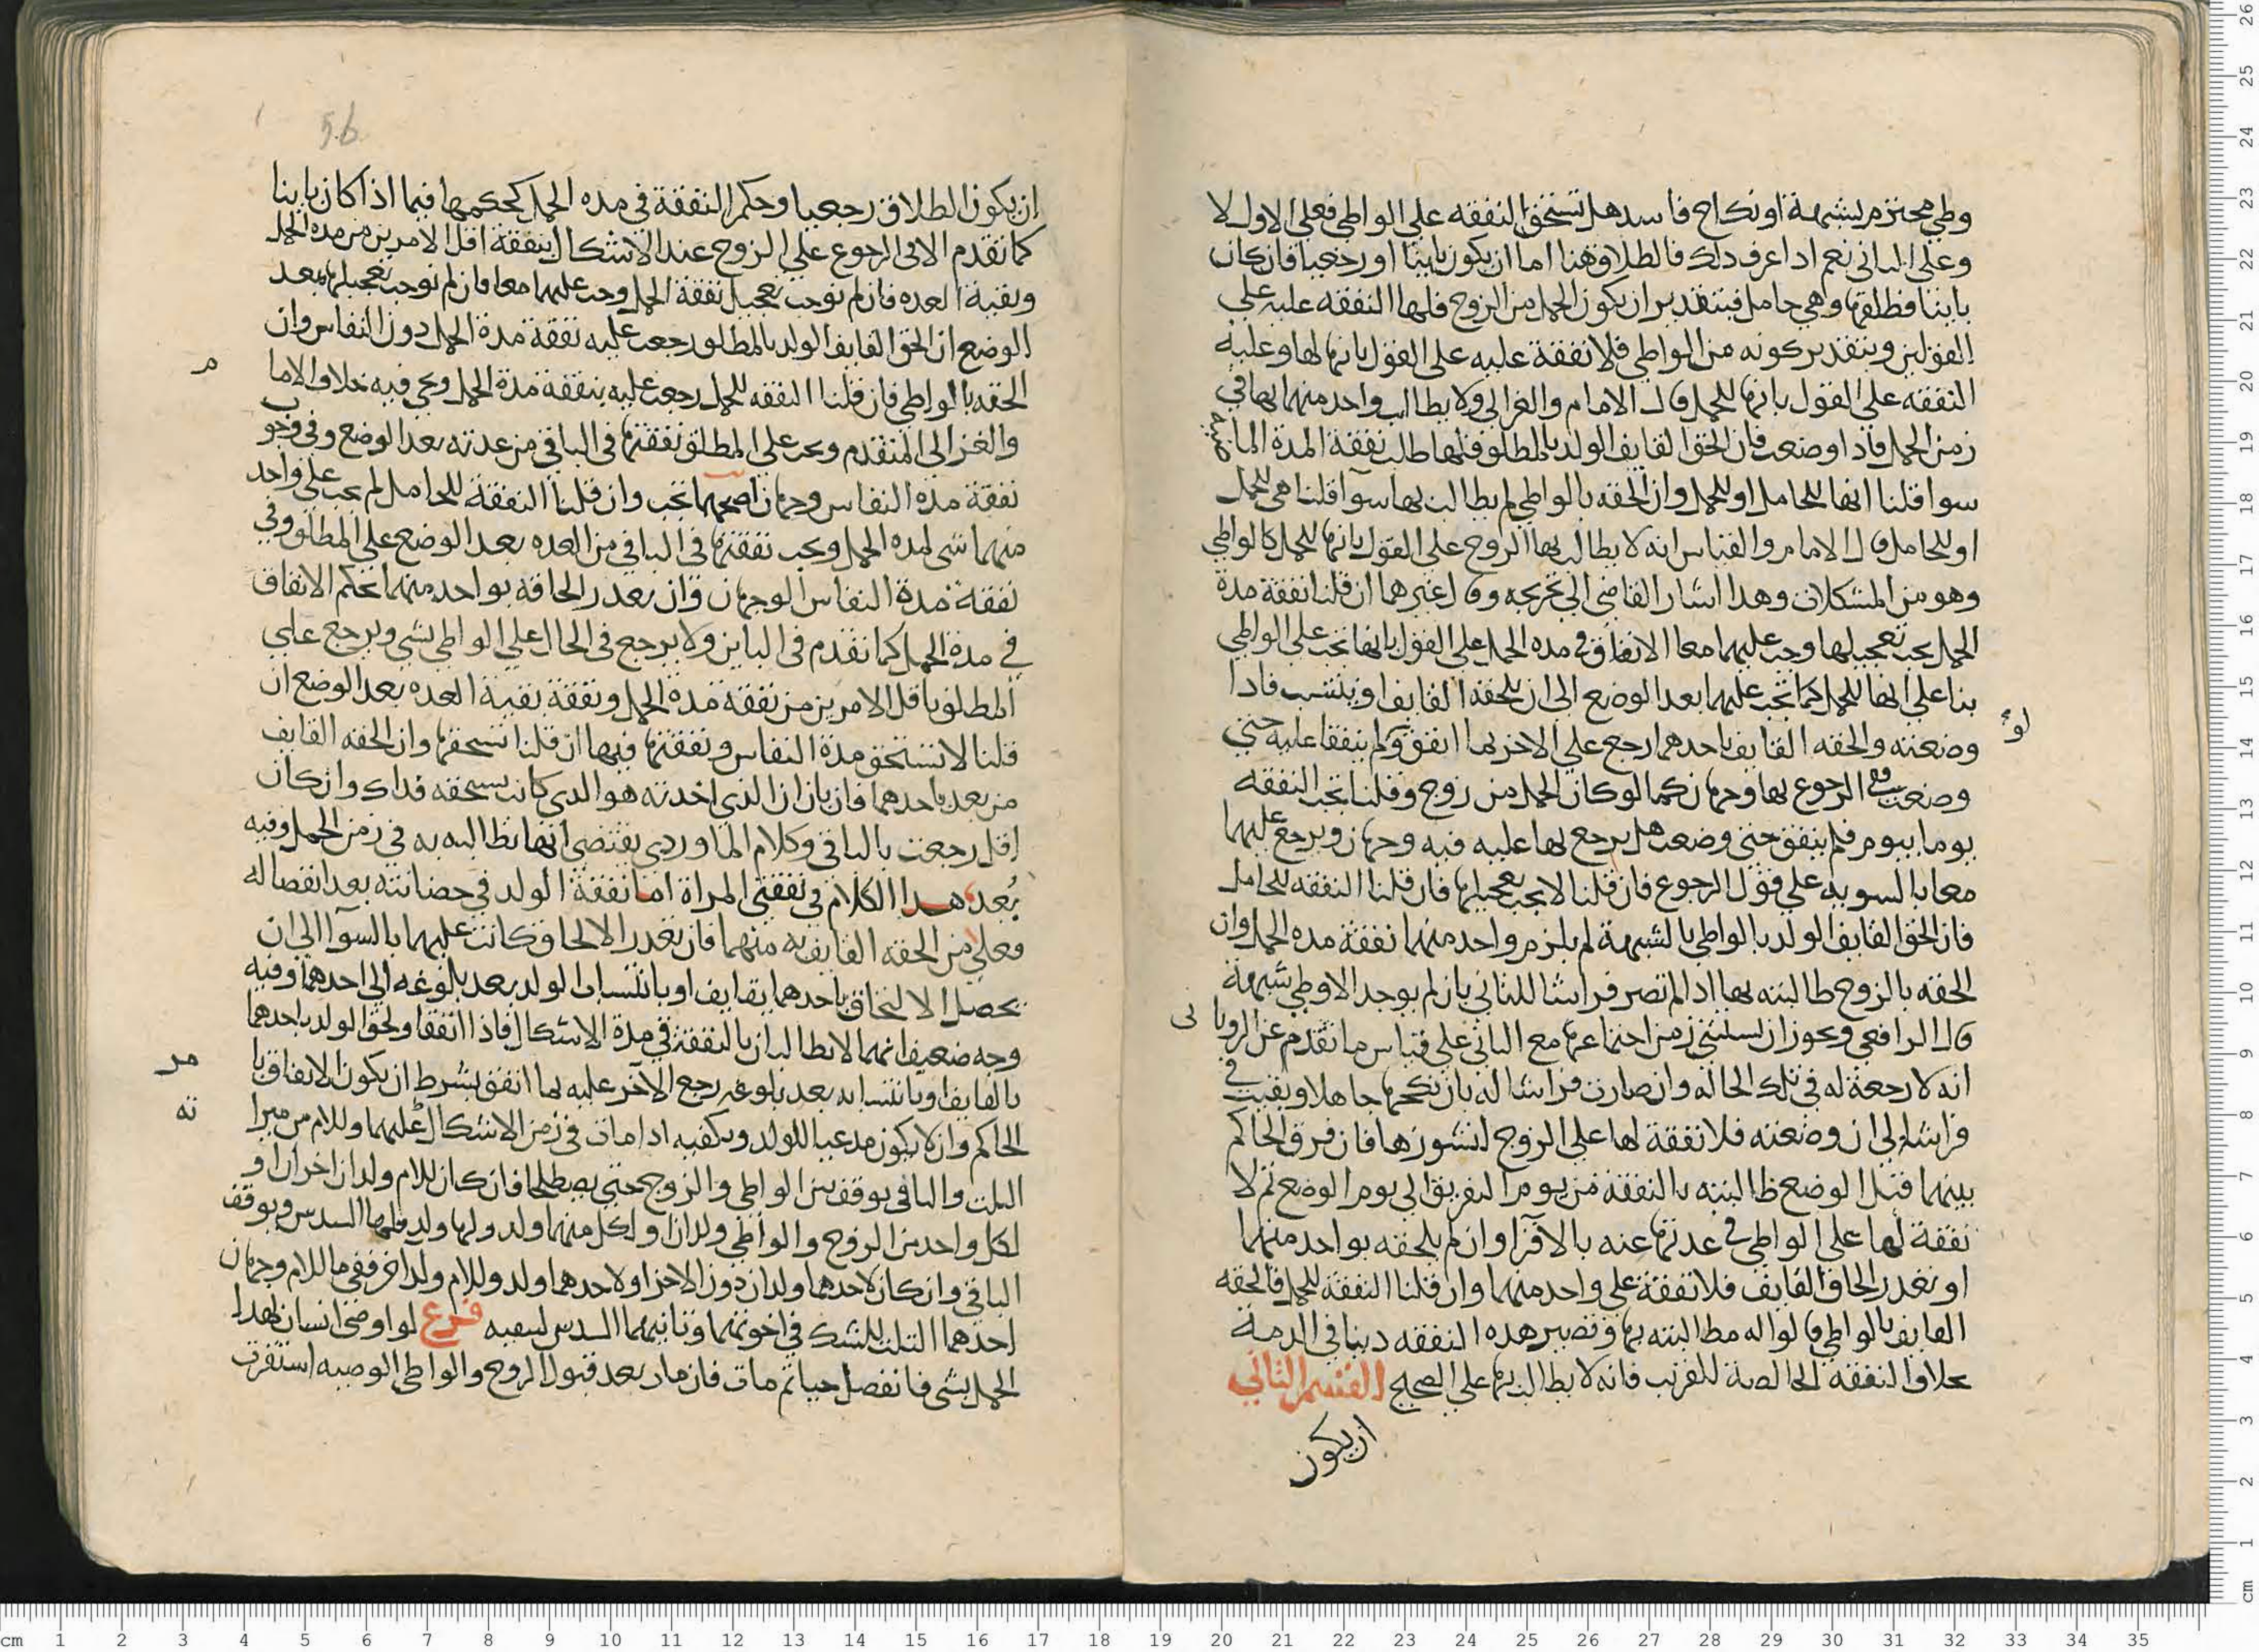 وطي محترم بشبهة او نكاح فاسد هل تستحق النفقه على الواطي فعلى الاول لا
وعلى الثاني نعم اذا عرف ذلك فالطلاق هنا اما ان يكون باينا او رجعيا فان كان
باينا فطلقها وهي حامل فبتقدير ان يكون الحمل من الزوج فلها النفقه عليه على
القولين وبتقدير كونه من الواطي فلا نفقة عليه على القول بانها لها وعليه
النفقه على القول بانها للحمل قال الامام والغزالي ولا يطالب واحد منهما بها في
زمن الحمل فاذا وضعت فان الحق القايف الولد بالمطلق فلها طلب نفقة المدة الماضية
سوا قلنا انها للحامل او للحمل وان الحقه بالواطي لم يطالب بها سوآ قلنا هي للحمل
او للحامل قال الامام والقياس انه لا يطالب بها الزوج على القول بانها للحمل كالواطي
وهو من المشكلات وهذا اشار القاضي الى تخريجه وقال غيرهما ان قلنا نفقة مدة
الحمل يجب تعجيلها وجب عليهما معا الانفاق في مده الحمل على القول بانها تجب على الواطي
بنا على انها للحمل كما تجب عليهما بعد الوضع الى ان يلحقه القايف او ينتسب فاذا
وضعته والحقه القايف باحدهما رجع على الاخر بما انفق ولم ينفقا عليه حتى
وضعت ففي الرجوع بها وجهان كما لو كان الحمل من زوج وقلنا تجب النفقه
يوما بيوم فلم ينفق حتى وضعت هل يرجع بها عليه فيه وجهان ويرجع عليهما
معا بالسويه على قول الرجوع فان قلنا لا يجب تعجيلها فان قلنا النفقه للحامل
فان الحق القايف الولد بالواطي بالشبهة لم يلزم واحد منهما نفقة مده الحمل وان
الحقه بالزوج طالبته بها اذا لم تصر فراشا للثاني بان لم يوجد الا وطي شبهة
قال الرافعي ويجوز ان يستثنى زمن اجتماعها مع الثاني على قياس ما تقدم عن الرويا ني
انه لا رجعة له في تلك الحاله وان صارت فراشا له بان نكحها جاهلا وبقيت في
فراشه الى ان وضعته فلا نفقة لها على الزوج لنشوزها فان فرق الحاكم
بينهما قبل الوضع طالبته بالنفقة من يوم التفريق الى يوم الوضع ثم لا
نفقة لها على الواطي في عدتها عنه بالاقرآ وان لم يلحقه بواحد منهما
او تعذر الحاق القايف فلا نفقة على واحد منهما وان قلنا النفقة للحمل فالحقه
القايف بالواطي قالوا له مطالبته بها وتصير هذه النفقه دينا في الذمة
بخلاف النفقه الخالصة للقريب فانه لا يطالب بها على الصحيح القسم الثاني
ان يكون
56
ان يكون الطلاق رجعيا وحكم النفقة في مده الحمل كحكمها فيما اذا كان باينا
كما تقدم الا في الرجوع على الزوج عند الاشكال بنفقة اقل الامرين من مده الحمل
وبقية العده فان لم نوجب تعجيل نفقة الحمل وجب عليهما معا فان لم نوجب تعجيلها فبعد
الوضع ان الحق القايف الولد بالمطلق رجعت عليه نفقة مدة الحمل دون النفاس وان
الحقه بالواطي فان قلنا النفقه للحمل رجعت عليه بنفقة مدة الحمل ويجي فيه خلاف الاما م
والغزالي المتقدم ويجب على المطلق نفقتها في الباقي من عدته بعد الوضع وفي وجوب
نفقة مدة النفاس وجهان اصحهما تجب وان قلنا النفقة للحامل لم تجب على واحد
منهما شي لمده الحمل ويجب نفقتها في الباقي من العده بعد الوضع على المطلق وفي
نفقة مدة النفاس الوجهان وان تعذر الحاقه بواحد منهما فحكم الانفاق
في مدة الحمل كما تقدم في الباين ولا يرجع في الحال على الواطي بشي ويرجع على
المطلق باقل الامرين من نفقة مدة الحمل ونفقة بقية العده بعد الوضع ان
قلنا لا تستحق مدة النفاس ونفقتها فيها ان قلنا تستحقها وان الحقه القايف
من بعد باحدهما فان بان ان الذي اخذته هو الذي كانت تستحقه فذاك وان كان
اقل رجعت بالباقي وكلام الماوردي يقتضي انها تطالبه به في زمن الحمل وفيه
بُعد هذا الكلام في نفقة المراة اما نفقة الولد في حضانته بعد انفصاله
فعلى من الحقه القايف به منهما فان تعذر الالحاق كانت عليهما بالسوآ الى ان
يحصل الالتحاق باحدهما بقايف او بانتساب الولد بعد بلوغه الى احدهما وفيه
وجه ضعيف انهما لا يطالبان بالنفقة في مدة الاشكال فاذا انفقا ولحق الولد باحدهما
بالقايف او بانتسابه بعد بلوغه رجع الآخر عليه بما انفق بشرط ان يكون الانفاق با مر
الحاكم وان لا يكون مدعيا للولد ويكفيه اذا مات في زمن الاشكال عليهما وللام من ميرا ثه
الثلث والباقي يوقف بين الواطي والزوج حتى يصطلحا فان كان للام ولدان اخران او
لكل واحد من الزوج والواطي ولدان او لكل منهما ولد ولها ولد فلها السدس ويوقف
الباقي وان كان لاحدهما ولدان دون الاخر او لاحدهما ولد وللام ولد اخر ففي ما للام وجهان
احدهما الثلث للشك في اخوتهما وثانيهما السدس ليقينه فرع لو اوصى انسان لهذا
الحمل بشي فانفصل حيا ثم مات فان مات بعد قبول الزوج والواطي الوصيه استقرت